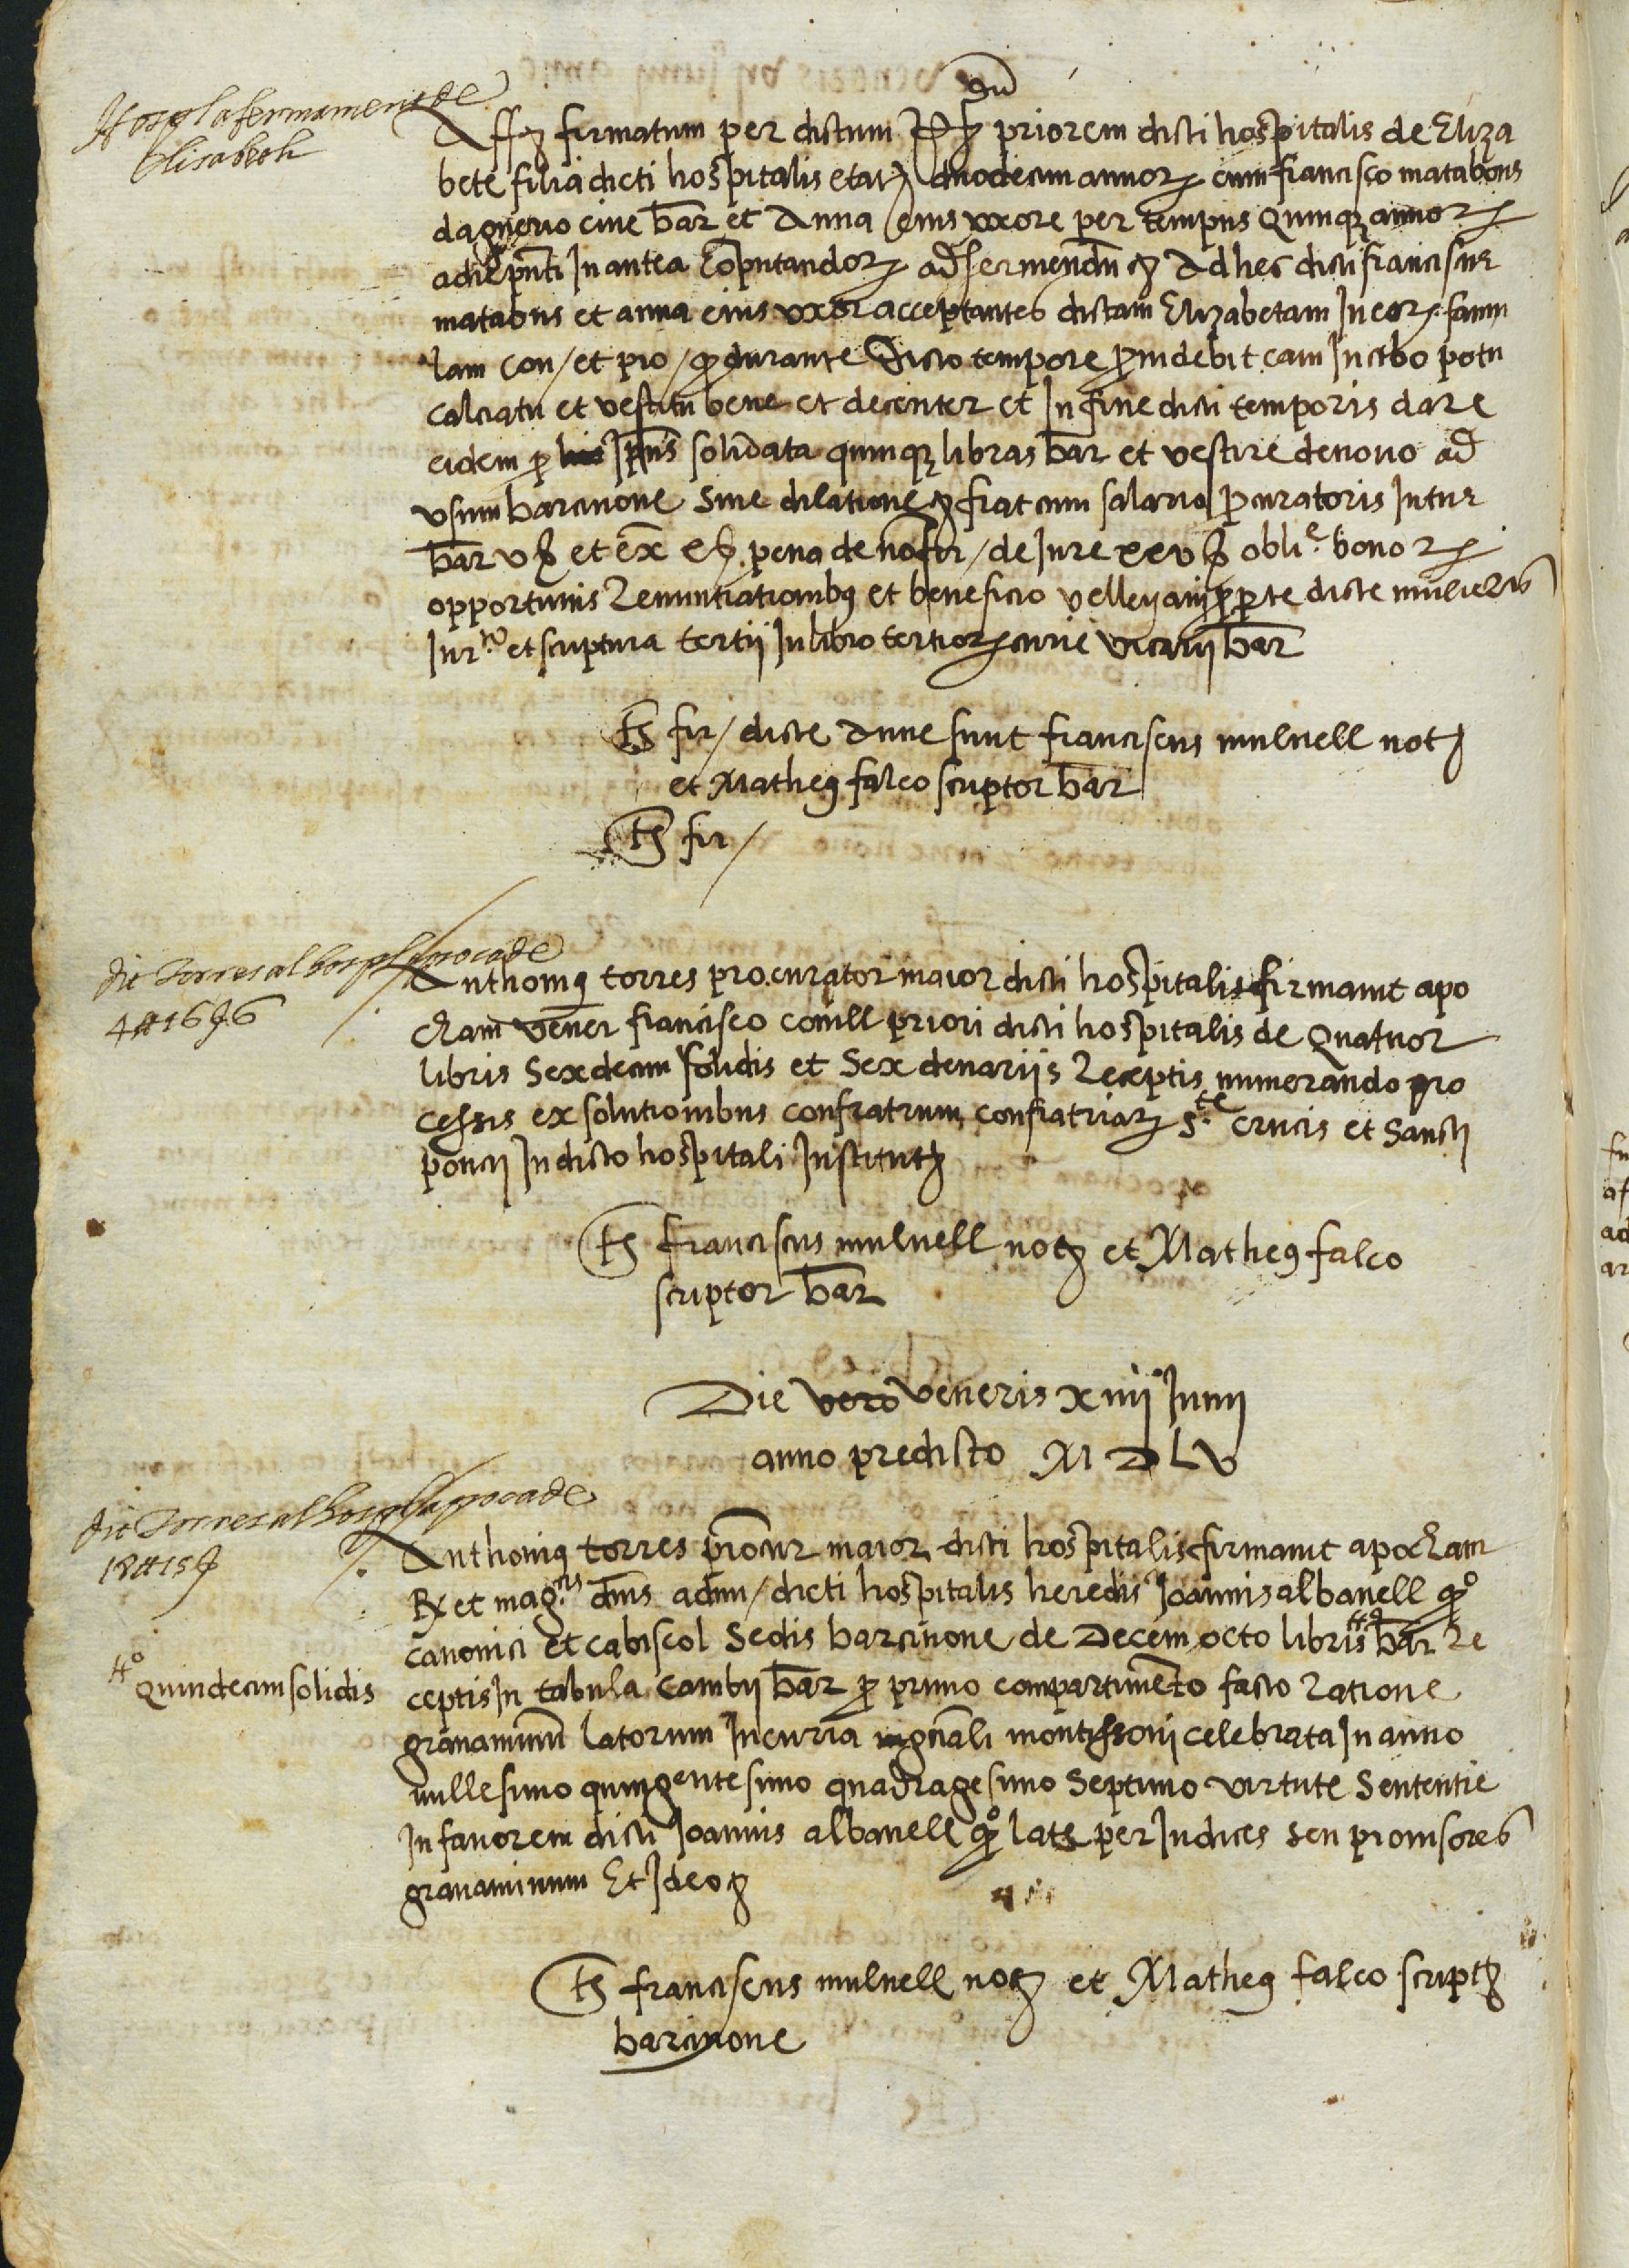 Hosp la fermament de
Elisabeth
dn
Aff firmatum per dictum priorem dicti hospitalis de Eliza
bete filia dicti hospitalis etat duodecim annor cum francisco matabous
daguerio cive bar et Anna eius uxore per tempus quinq annor
a die pnti In antea coputandor ad serviendu Ad hec dicti franciscus
matabous et anna eius uxor acceptantes dictam Elizabetam In eor famu
lam con / et pro / durante dicto tempore providebit eam In cibo potu
calciatu et vestitu bene et decenter et In fine dicti temporis dare
eidem p Ipius solidata quinq libras bar et vestire denovo ad
usum barcinone sine dilatione fiat cum salario procuratoris Intus
bar v ß et ex x ß pena de nostr / de Jure xxv ß oblie bonor
opportunis Renuntiationibus et beneficio velleyani p parte dicte mulieris
Jurto et scriptura tertii In libro tertior curie vicarii bar
ts fir / dicte Anne sunt franciscus mulnell not
et Matheus falco scriptor bar
ts fir /
dit Torres al hospl apoca de
4 ₶ 16 ß 6
Anthonius torres procurator maior dicti hospitalis firmavit apo
cham vener francisco conill priori dicti hospitalis de quatuor
libris sexdecim solidis et sex denariis Receptis numerando pro
cessis ex solutionibus confratrum confratriar Ste crucis et sancti
poncii In dicto hospitali Institut
ts franciscus mulnell not et Matheus falco
scriptor bar
Die vero veneris xiiii Junii
anno predicto M D L V
dit Torres al hospl apoca de
18 ₶ 15 ß
Anthonius torres procur maior dicti hospitalis firmavit apocham
Rx et magcis dnis admi / dicti hospitalis heredis Joannis albanell qo
canonici et cabiscol Sedis barcinone de Decem octo libris bar Re
quindecim solidis
ceptis In tabula cambii bar p primo compartimento facto Ratione
gravaminum latorum In curia gnali montissoni celebrata In anno
millesimo quingentesimo quadragesimo septimo virtute sententie
In favorem dicti Joannis albanell qo late per Judices seu provisores
gravaminum Et Ideo
ts franciscus mulnell not et Matheus falco script
barcinone